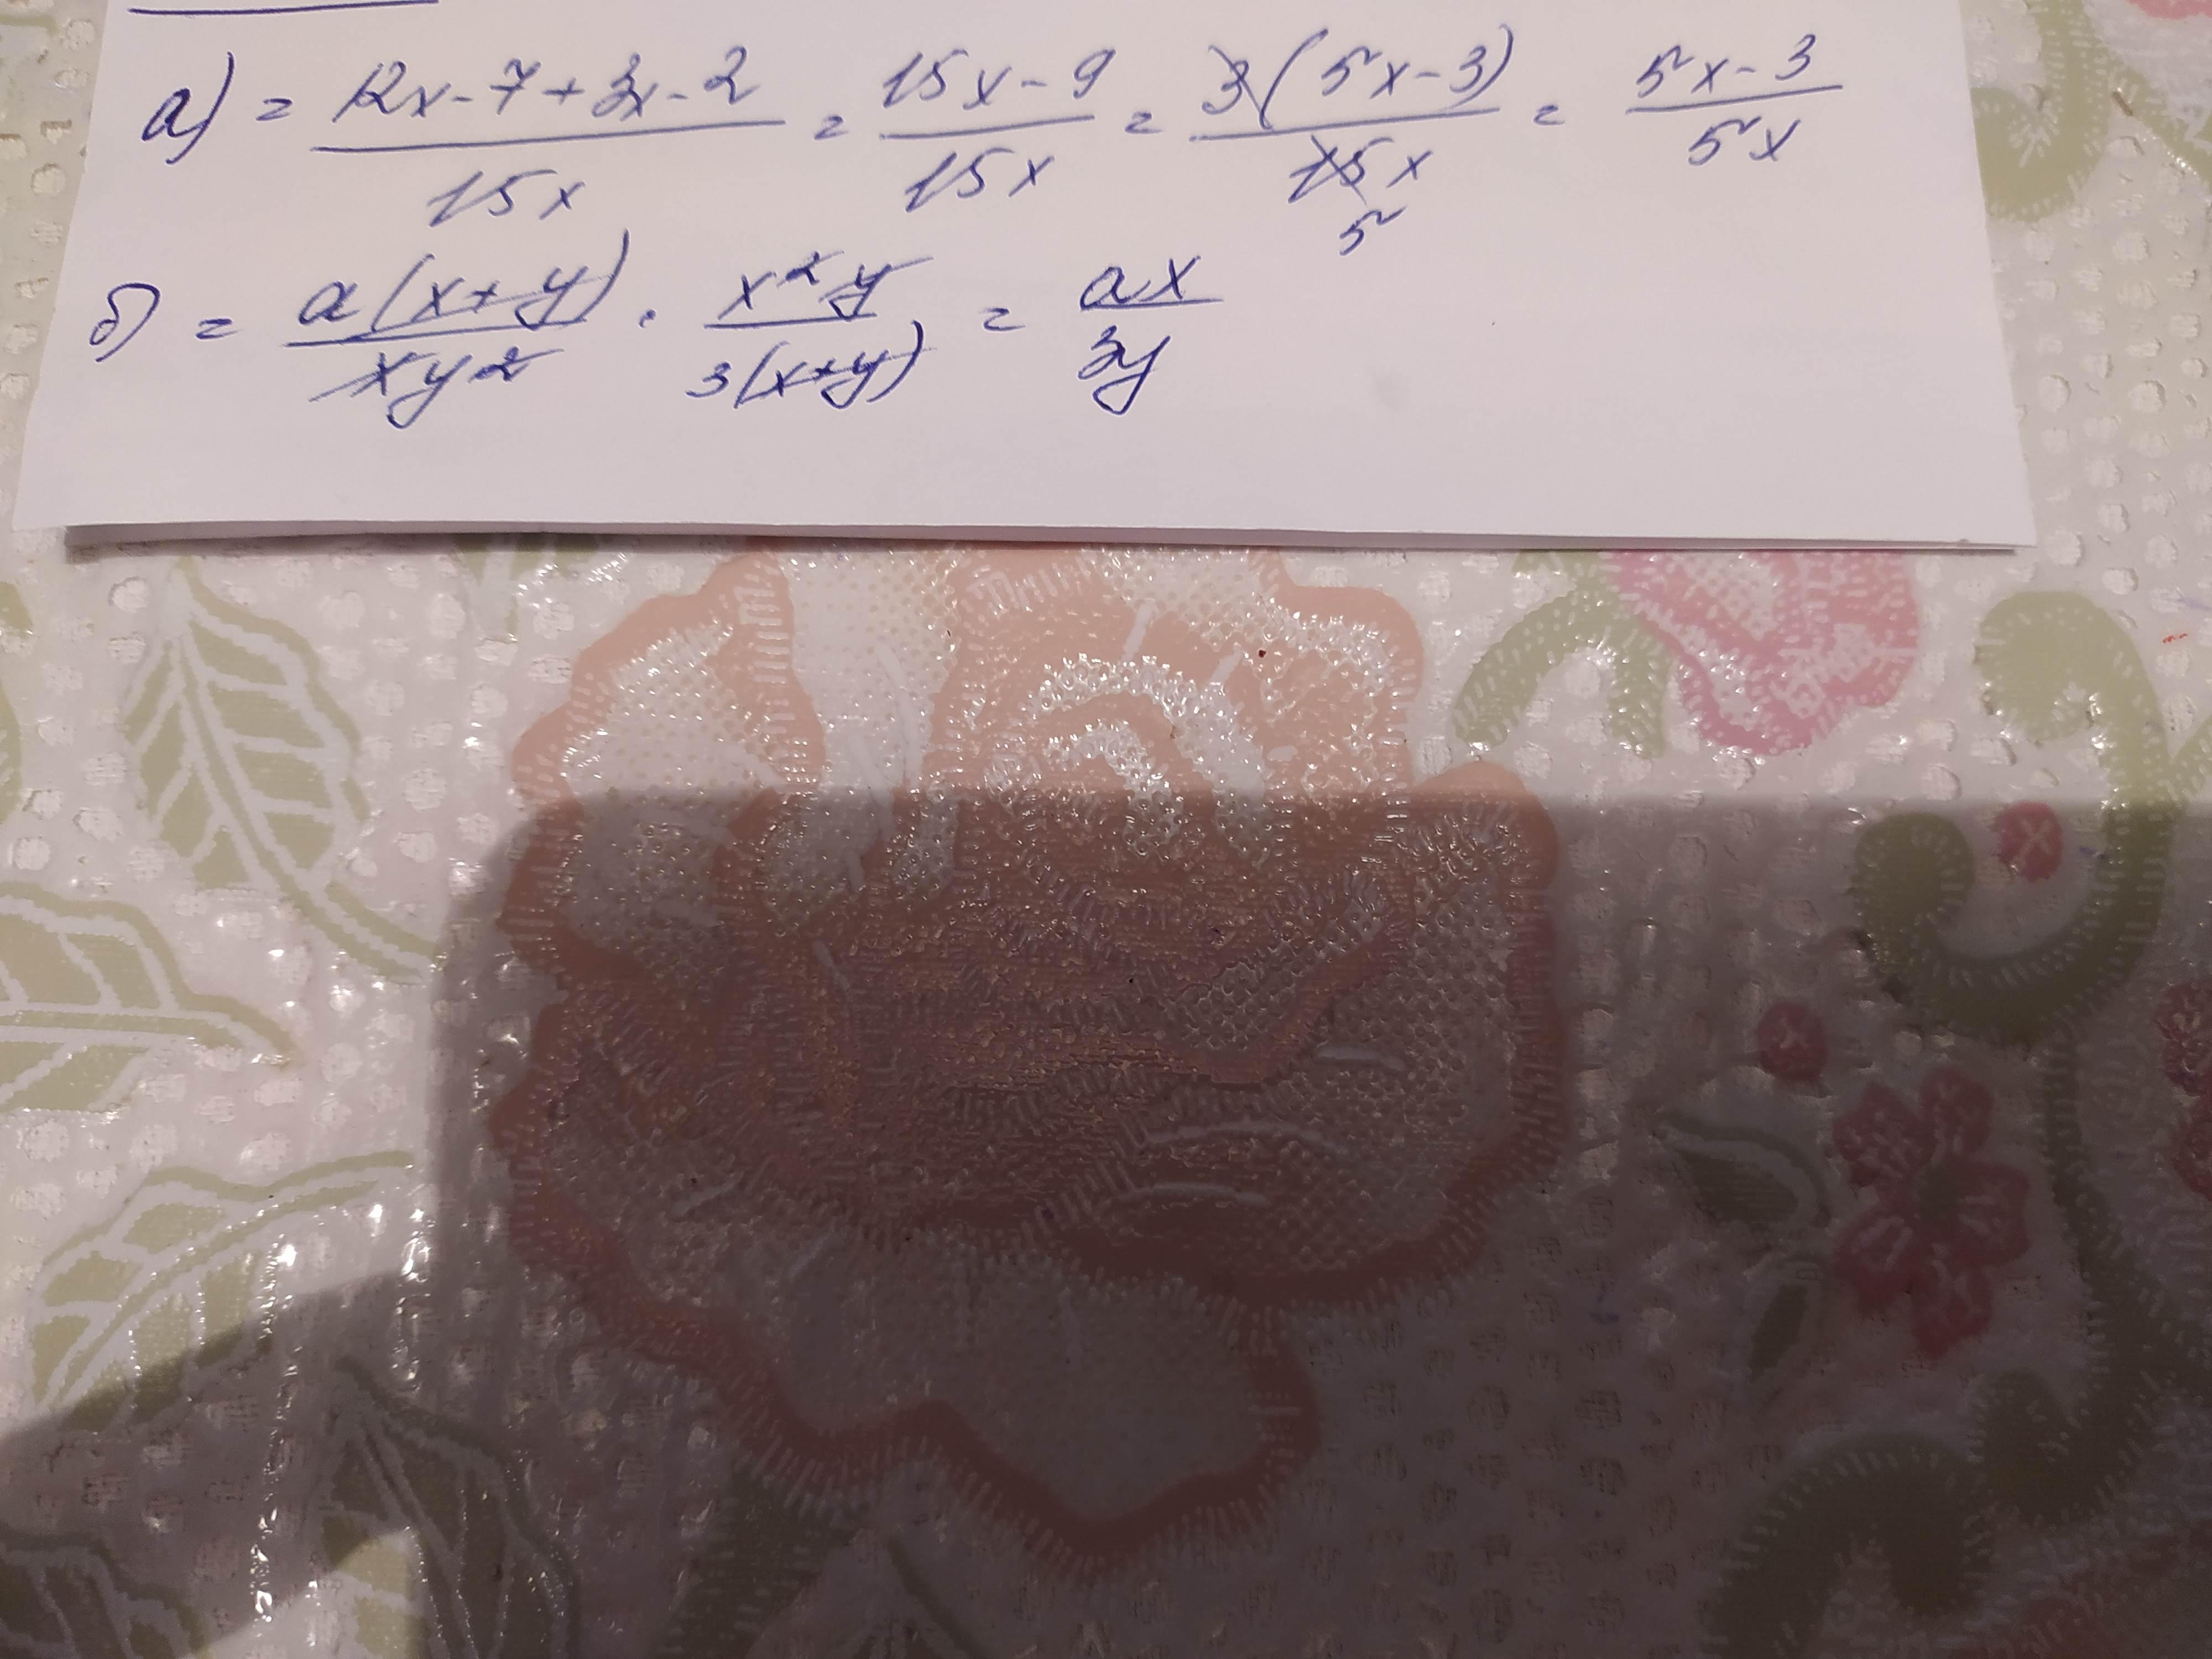 а) = (12x-7+3x-2)/(15x) = (15x-9)/(15x) = (3(5x-3))/(15x) 5 = (5x-3)/(5x)
б) = (a(x+y))/(xy²) · (x²y)/(3(x+y)) = (ax)/(3y)